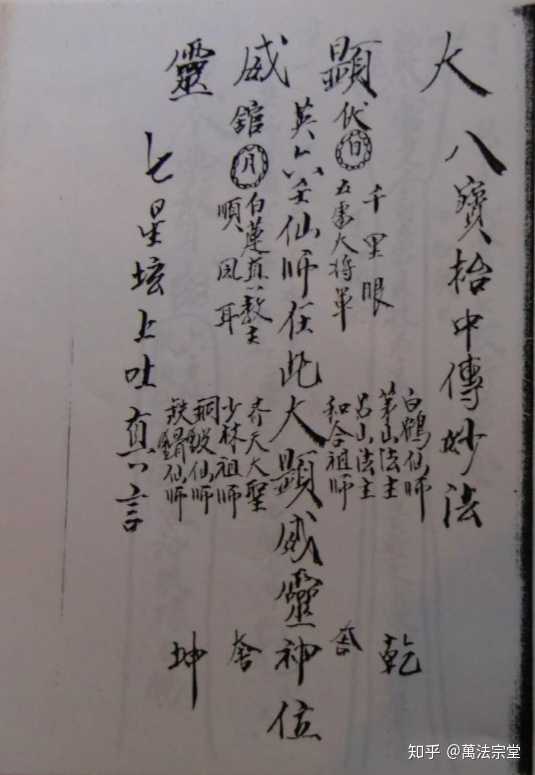 大顯威靈
八寶抬中傳妙法
千里眼
五雷大將軍
伏日
白鶴仙師
茅山法主
呂山法主
和合祖師
乾
英六壬仙師在此大顯威靈神位
館月
白蓮真教主
順風耳
齐天大聖
少林祖師
銅皮仙師
鉄骨仙師
坤
七星坛上吐真言
知乎 @萬法宗堂